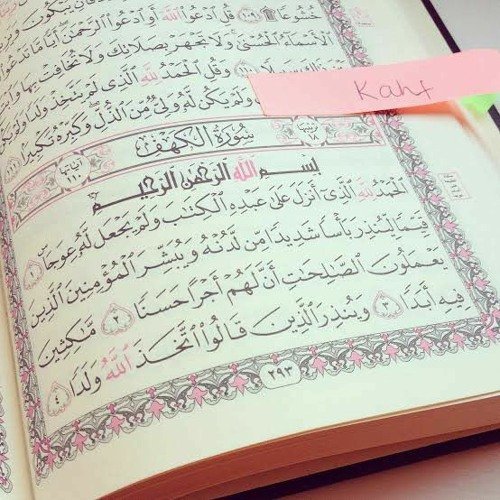 خُشُوعًا ۩ ﴿١٠٩﴾ قُلِ ٱدْعُوا۟ ٱللَّهَ أَوِ ٱدْعُوا۟ ٱلرَّحْمَٰنَ أَيًّا مَّا تَدْعُوا۟
ٱلْأَسْمَآءُ ٱلْحُسْنَىٰ ۚ وَلَا تَجْهَرْ بِصَلَاتِكَ وَلَا تُخَافِتْ بِهَا
سَبِيلًا وَقُلِ ٱلْحَمْدُ لِلَّهِ ٱلَّذِى لَمْ يَتَّخِذْ وَلَدًا
وَلَمْ يَكُن لَّهُۥ وَلِىٌّ مِّنَ ٱلذُّلِّ ۖ وَكَبِّرْهُ تَكْبِيرًۢا
Kahf
سُورَةُ ٱلْكَهْفِ
بِسْمِ ٱللَّهِ ٱلرَّحْمَٰنِ ٱلرَّحِيمِ
ٱلْحَمْدُ لِلَّهِ ٱلَّذِىٓ أَنزَلَ عَلَىٰ عَبْدِهِ ٱلْكِتَٰبَ وَلَمْ يَجْعَل لَّهُۥ عِوَجَا ۜ ﴿١﴾
قَيِّمًا لِّيُنذِرَ بَأْسًا شَدِيدًا مِّن لَّدُنْهُ وَيُبَشِّرَ ٱلْمُؤْمِنِينَ ٱلَّذِينَ
يَعْمَلُونَ ٱلصَّٰلِحَٰتِ أَنَّ لَهُمْ أَجْرًا حَسَنًا ﴿٢﴾ مَّٰكِثِينَ
فِيهِ أَبَدًا ﴿٣﴾ وَيُنذِرَ ٱلَّذِينَ قَالُوا۟ ٱتَّخَذَ ٱللَّهُ وَلَدًا ﴿٤﴾
٢٩٣